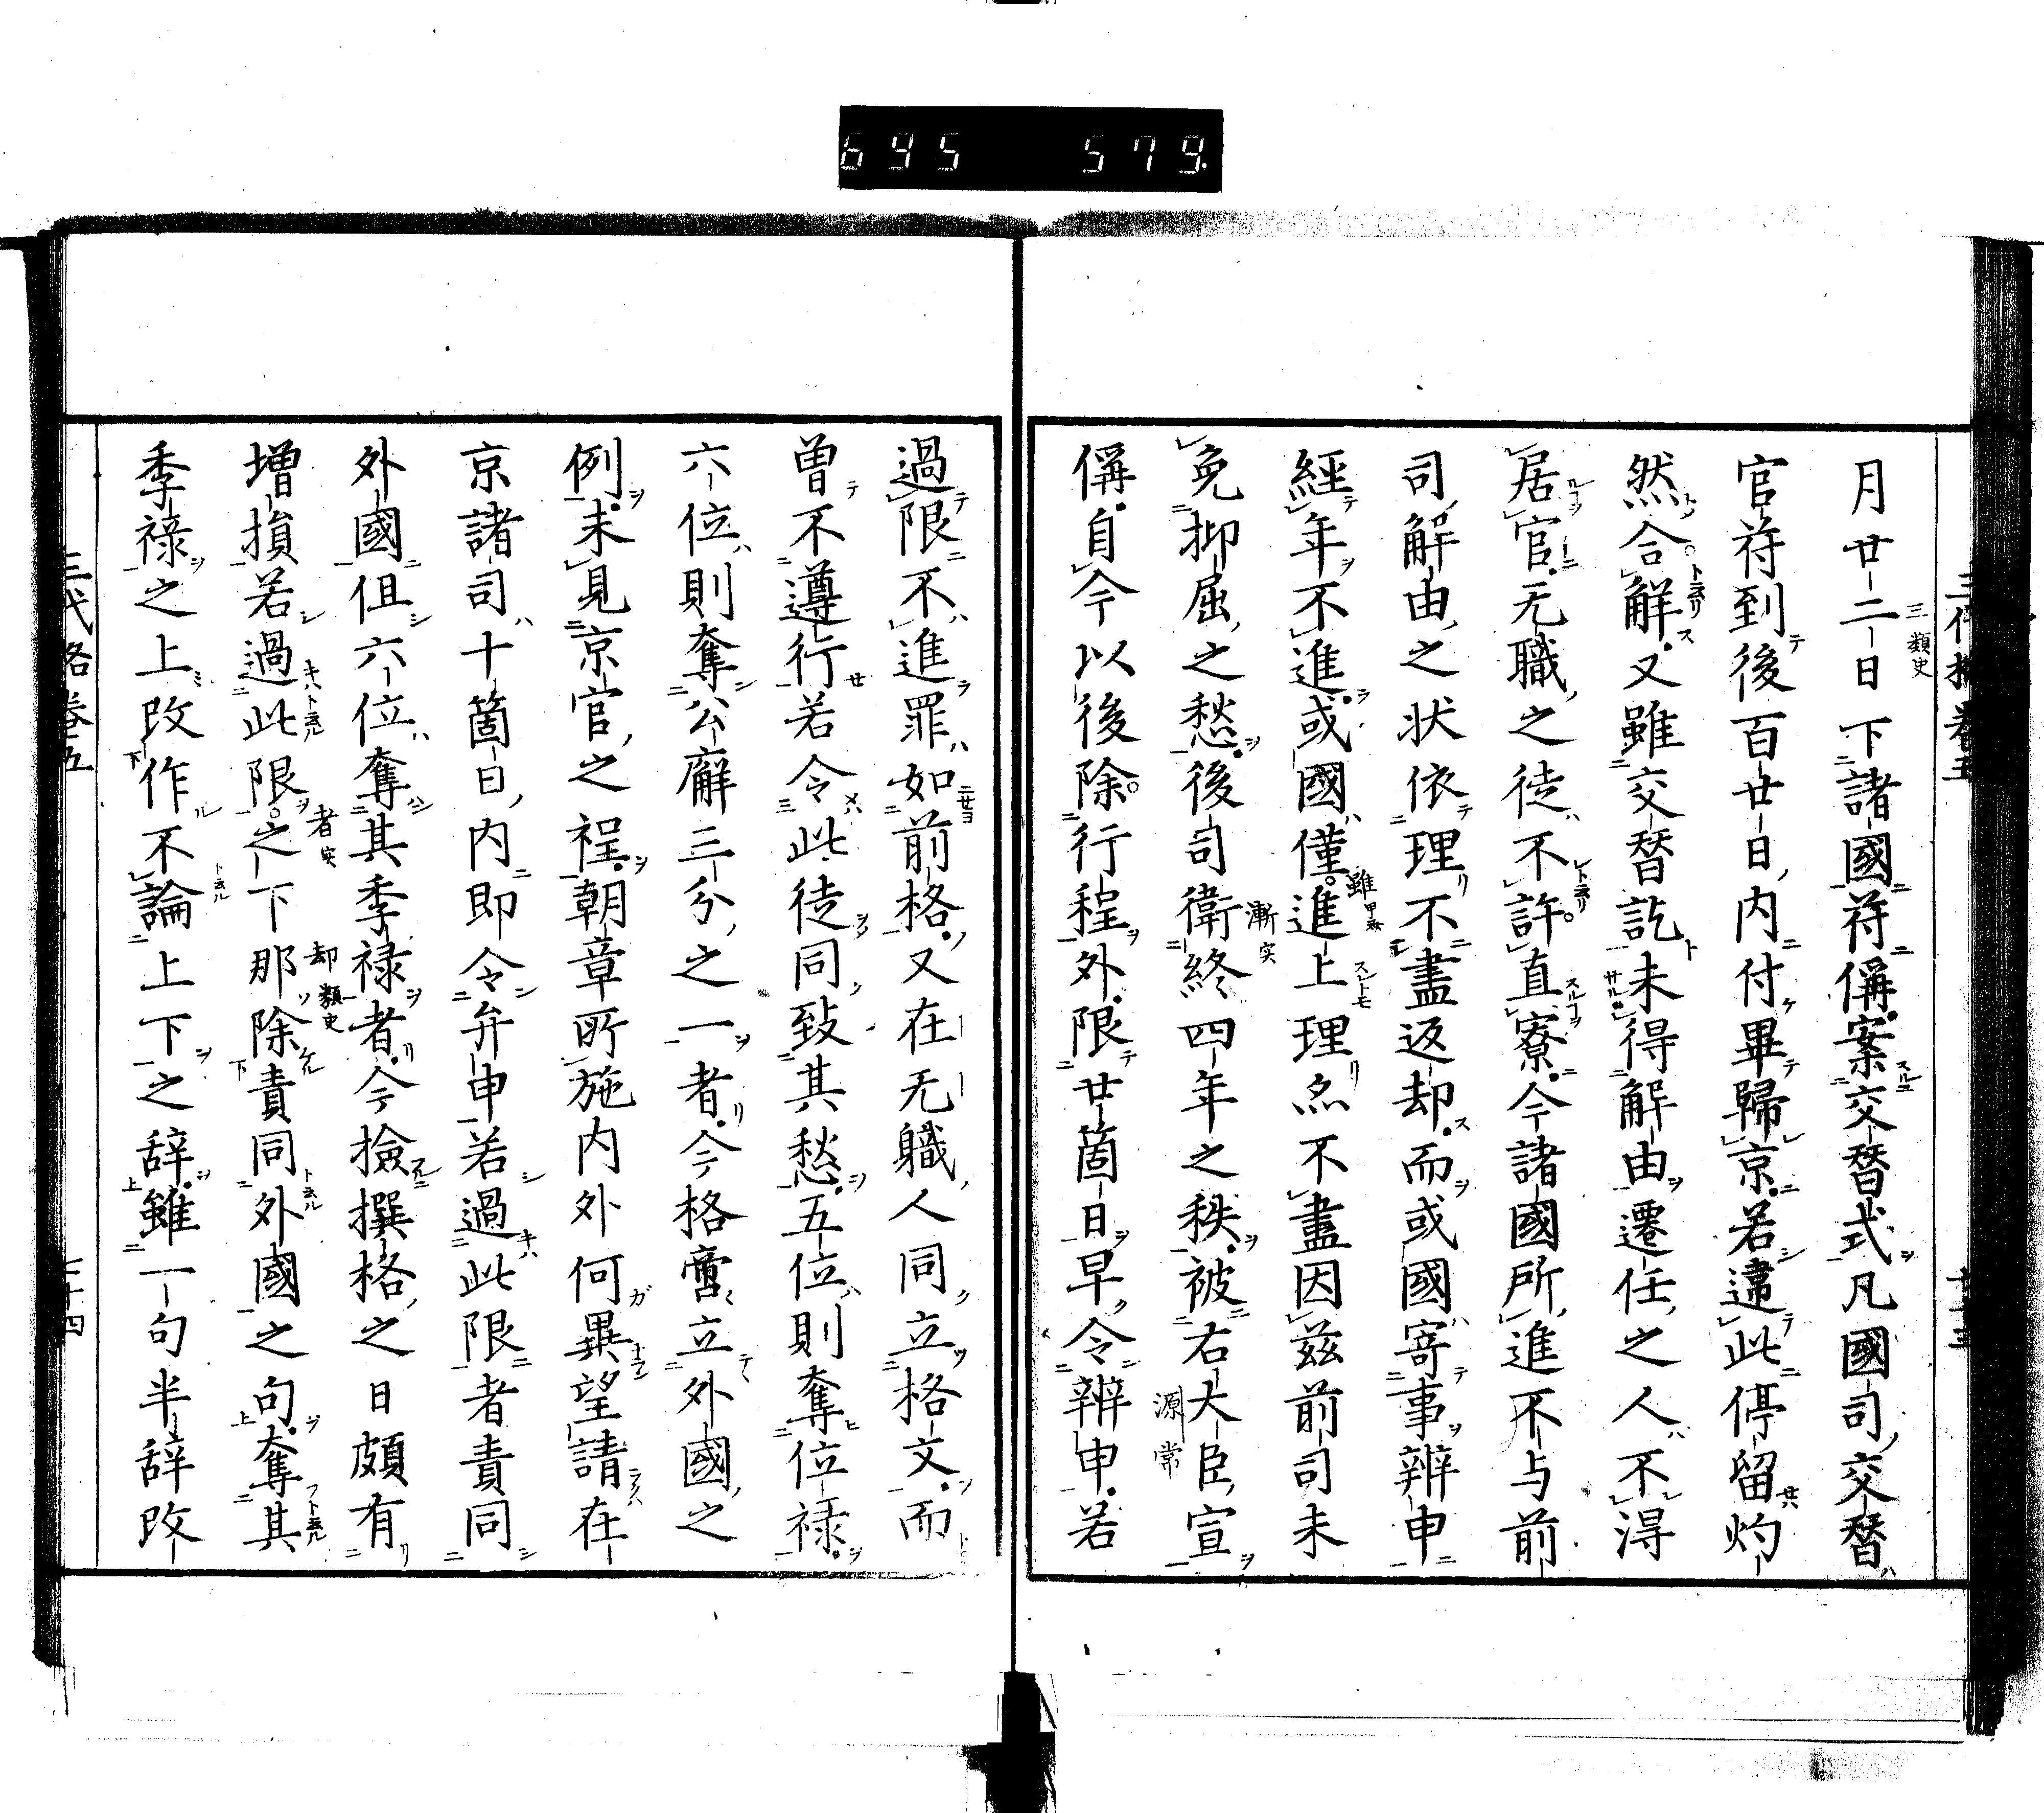 695 579.
月廿二日下諸國符偁案交替式凡國司交替
官符到後百廿日内付畢歸京若違此停留灼
然合解又雖交替訖未得解由遷任之人不得
居官无職之徒不許直寮今諸國所進不与前
司解由之状依理不盡返却而或國寄事辨申
經年不進或國僅進上理亦不盡因茲前司未
免抑屈之愁後司衛終四年之秩被右大臣宣
偁自今以後除行程外限廿箇日早令辨申若
過限不進罪如前格又在无職人同立格文而
曽不遵行若令此徒同致其愁五位則奪位禄
六位則奪公廨三分之一者今格當立外國之
例未見京官之程朝章所施内外何異望請在
京諸司十箇日内即令弁申若過此限者責同
外國但六位奪其季禄者今撿撰格之日頗有
増損若過此限之下那除責同外國之句奪其
季禄之上改作不論上下之辞雖一句半辞改
三代格卷五